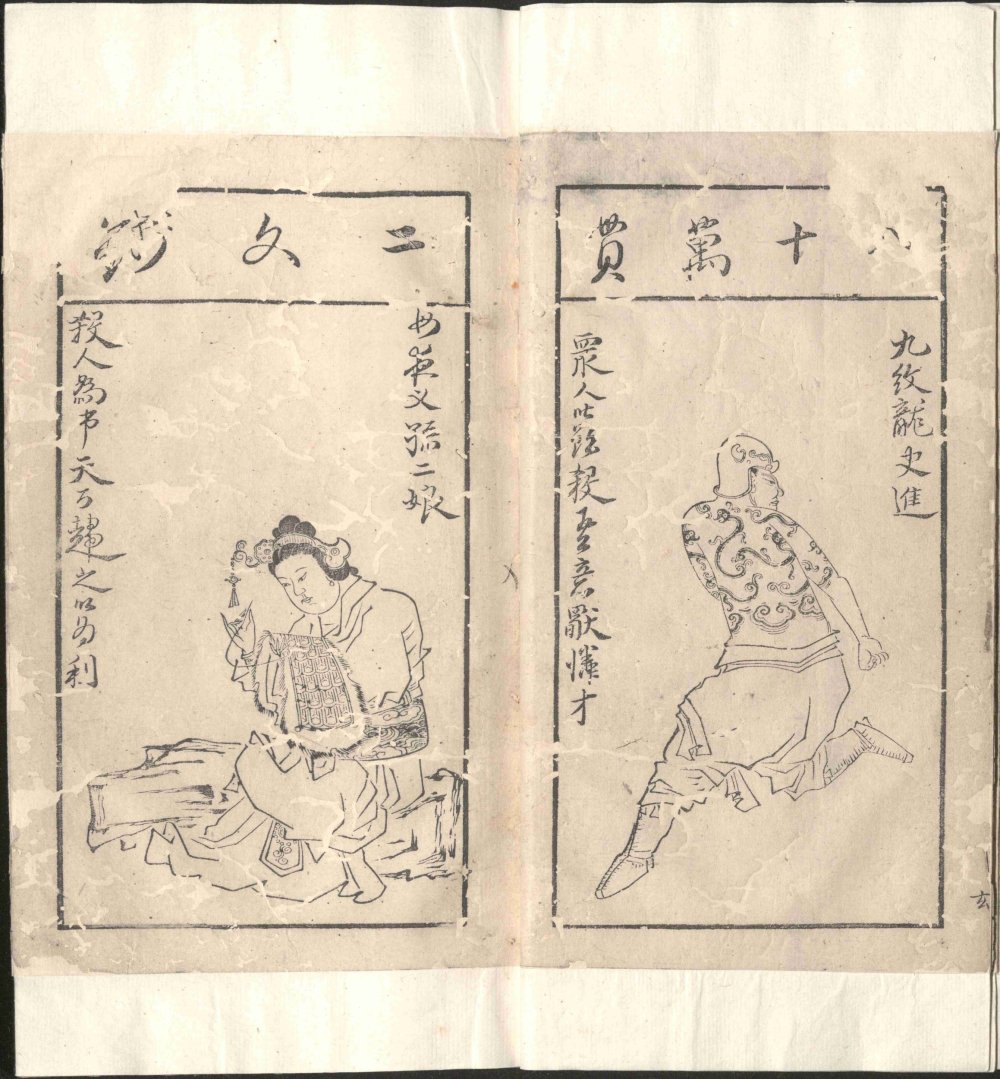 八十萬貫
九紋龍史進
眾人皆欲殺吾意獨憐才
二文錢
母夜叉孫二娘
殺人為市天下趨之以為利
玄